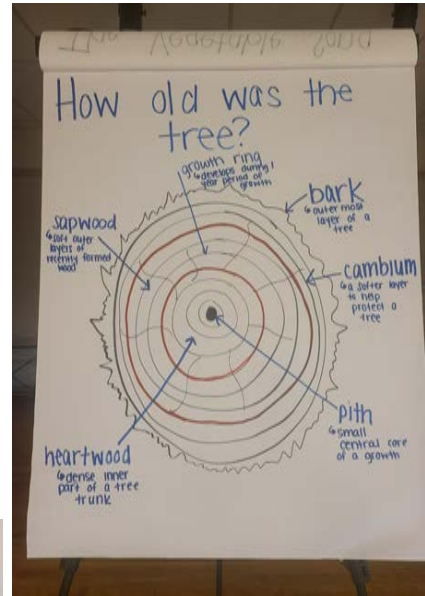 The Vegetable Song
How old was the
tree?
growth ring
↳develops during 1
year period of
growth
bark
↳outer most
layer of a
tree
sapwood
↳soft outer
layers of
recently formed
wood
cambium
↳a softer layer
to help
protect a
tree
pith
↳small
central core
of a growth
heartwood
↳dense inner
part of a tree
trunk